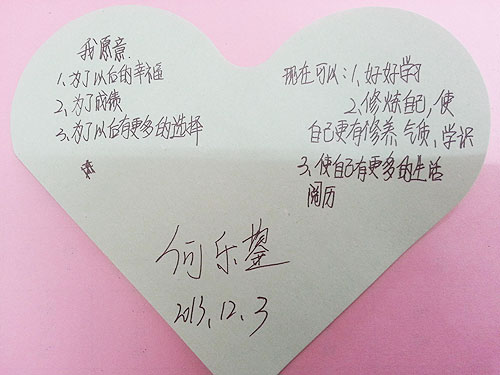 我愿意
1、为了以后的幸福
2、为了成绩
3、为了以后有更多的选择
现在可以：1、好好学习
2、修炼自己，使
自己更有修养、气质、学识
3、使自己有更多的生活
阅历
何乐鋆
2013.12.3